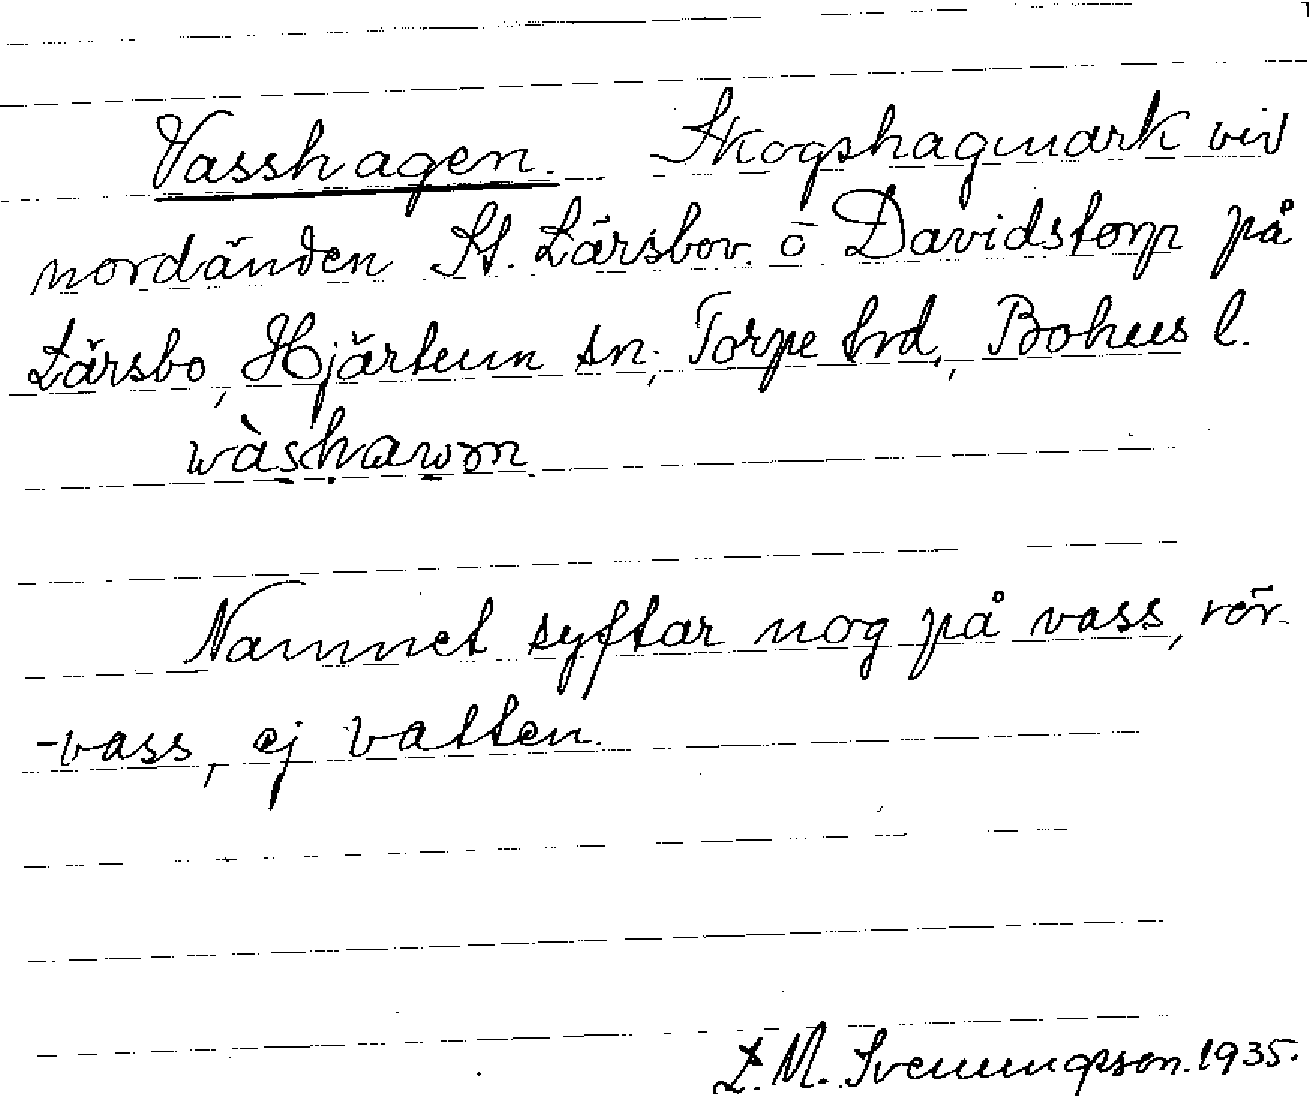 Vasshagen. Skogshagmark vid
nordänden St. Lärsbov. ö Davidstorp på
Lärsbo, Hjärtum sn, Torpe hrd, Bohus l.
wàshawən
Namnet syftar nog på vass, rör-
-vass, ej vatten.
L. M. Svenungsson. 1935.